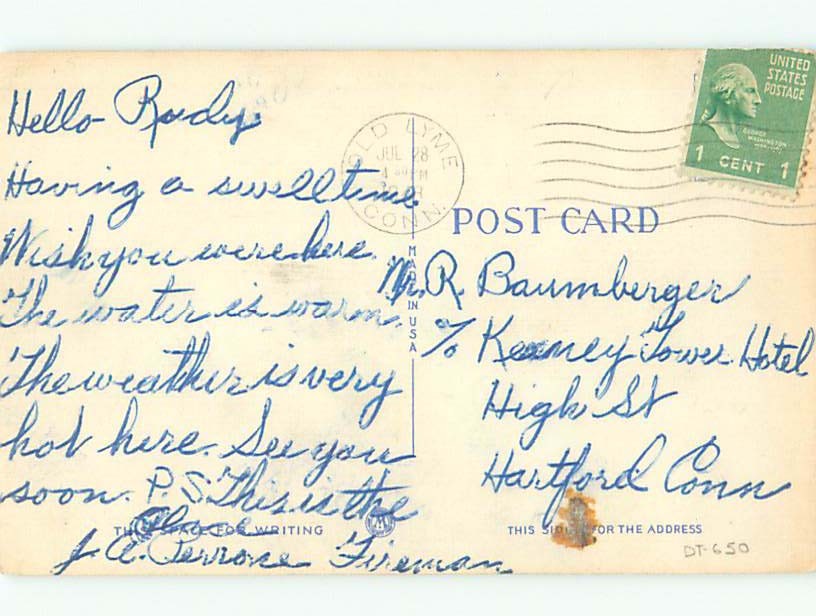 Hello Rudy
Having a swell time.
Wish you were here.
The water is warm.
The weather is very
hot here. See you
soon. P.S. This is the
place
J. A. Perrone Fireman
THIS SPACE FOR WRITING
OLD LYME
JUL 28
4 PM
CONN.
UNITED
STATES
POSTAGE
GEORGE
WASHINGTON
1 CENT 1
POST CARD
MADE IN USA
Mr. R. Baumberger
% Keeney Tower Hotel
High St
Hartford Conn
THIS SIDE FOR THE ADDRESS
DT-650